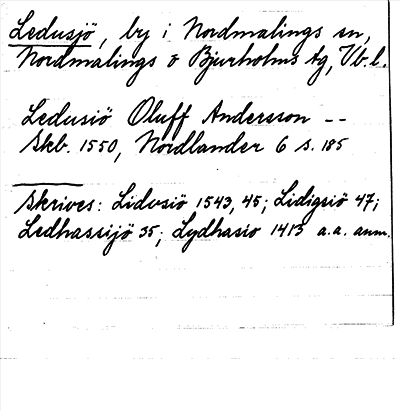 Ledusjö, by i Nordmalings sn,
Nordmalings o Bjurholms tg, Vb. l.
Ledusiö Oluff Andersson --
Skb. 1550, Nordlander 6 s. 185
Skrives: Lidusiö 1543, 45; Lidigsiö 47;
Ledhassijö 35; Lydhasio 1413 a.a. anm.